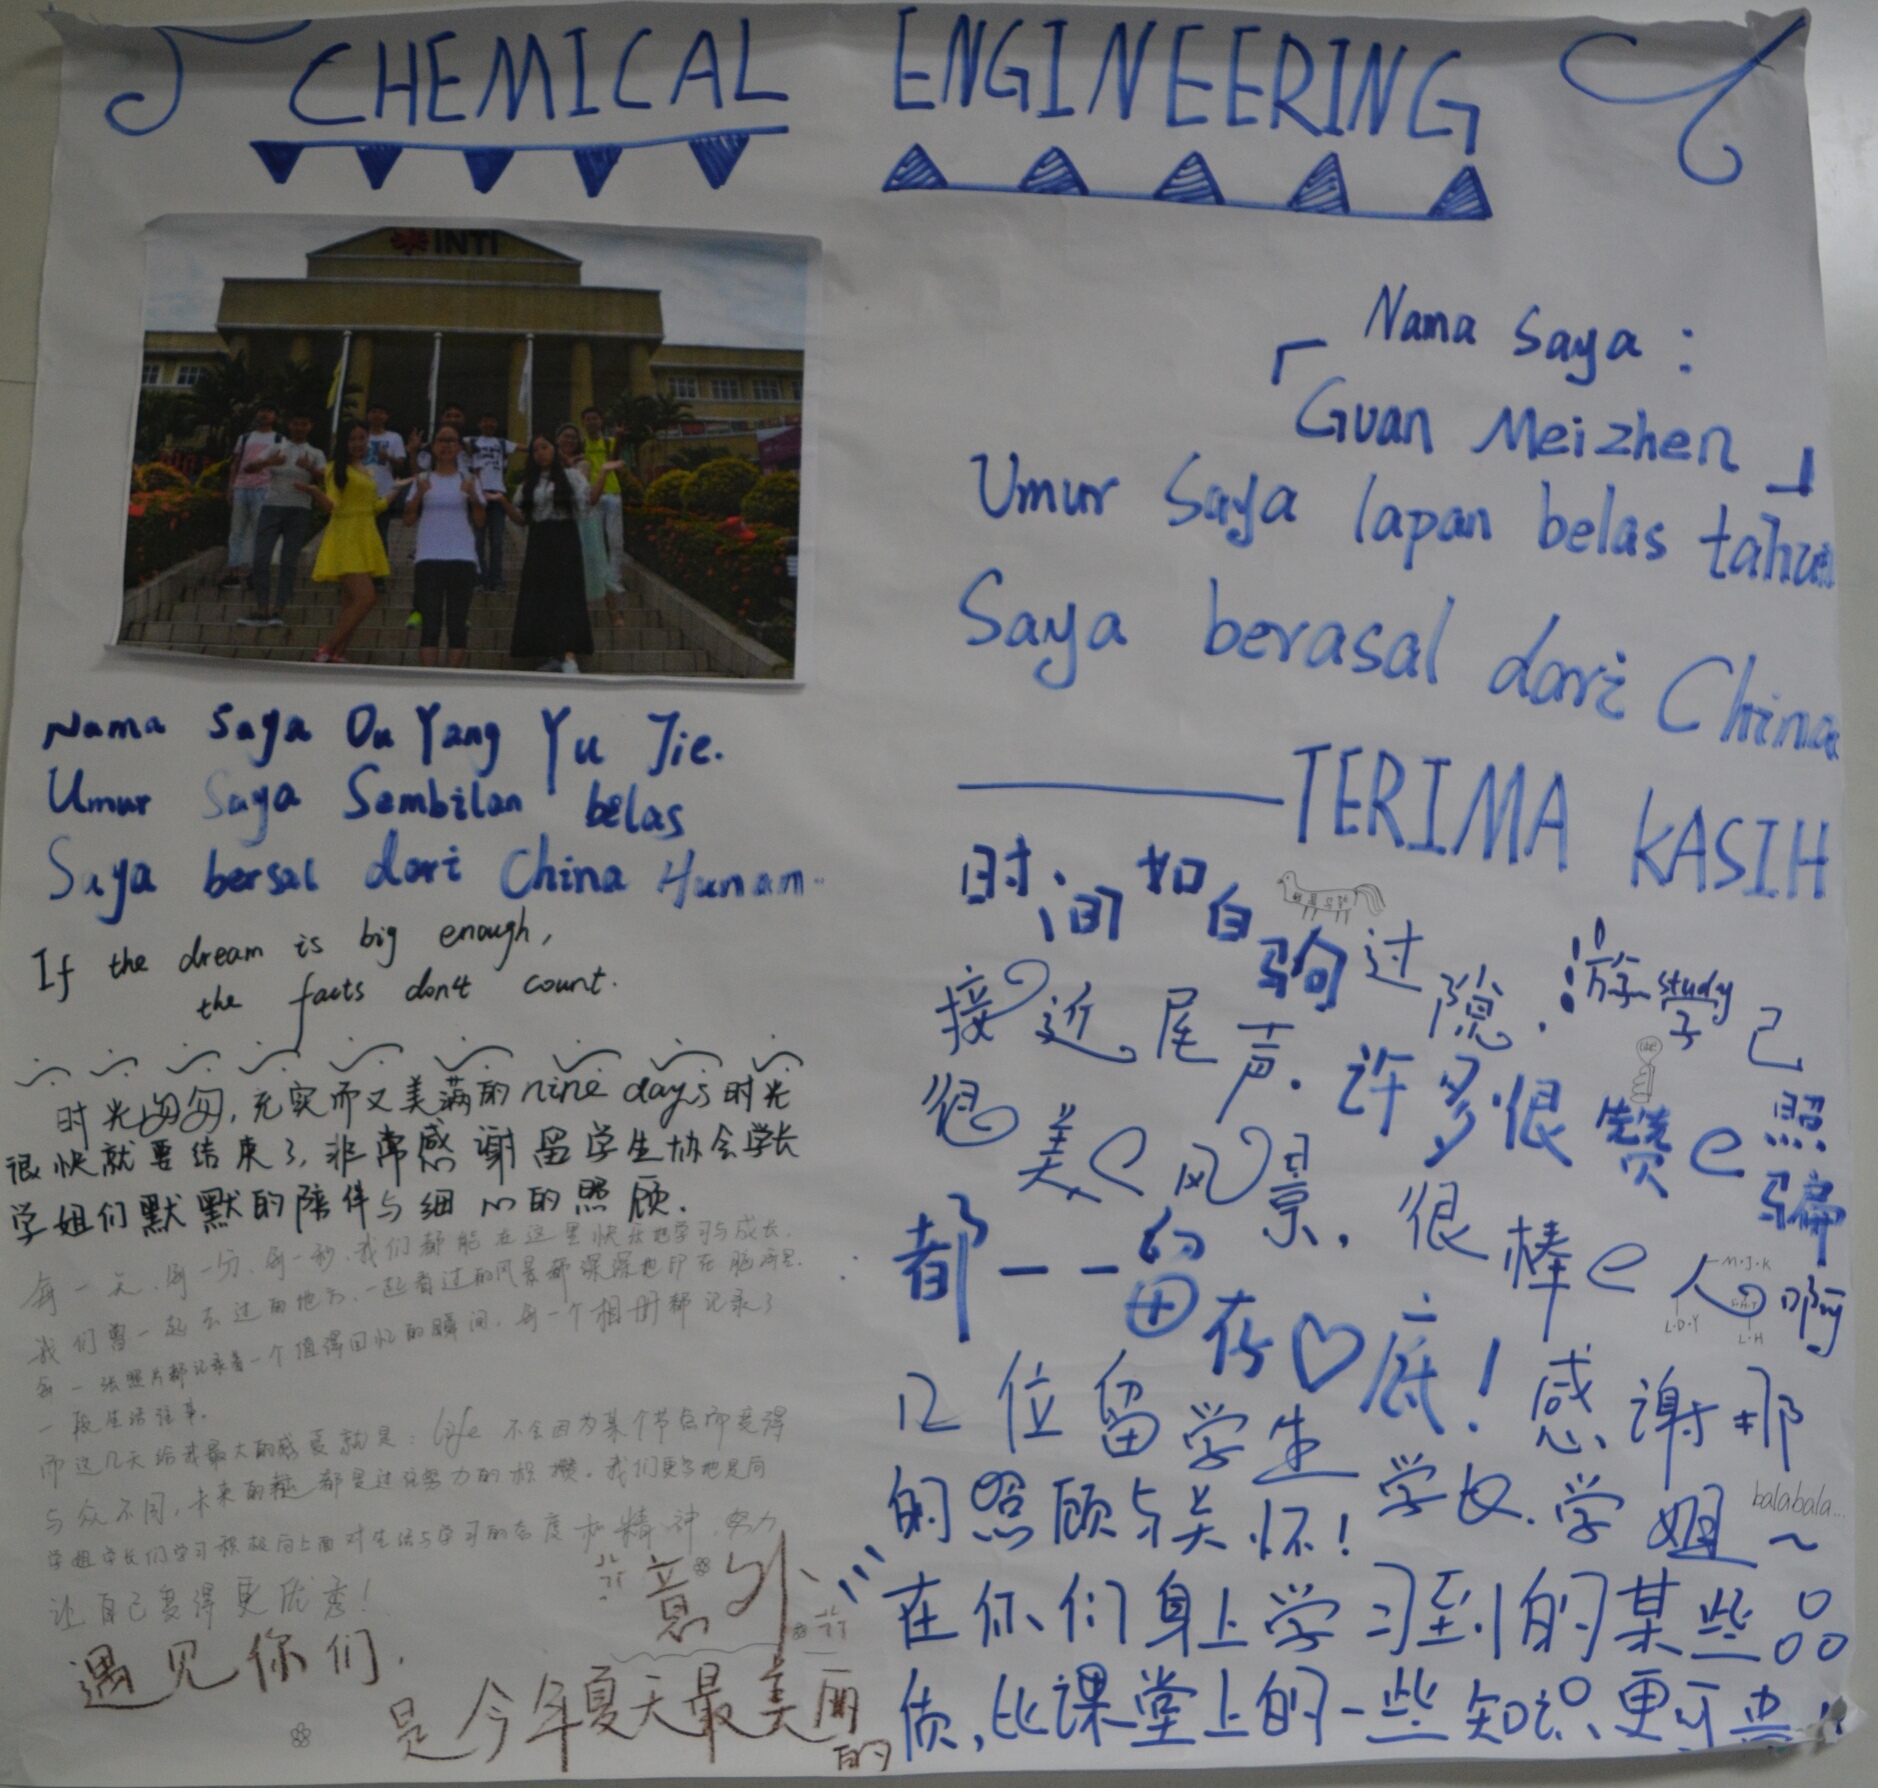 CHEMICAL ENGINEERING
INTI
Nama Saya Ou Yang Yu Jie.
Umur Saya Sembilan belas
Saya bersal dari China Hunam..
If the dream is big enough,
the facts don't count.
时光匆匆,充实而又美满的nine days时光
很快就要结束了,非常感谢留学生协会学长
学姐们默默的陪伴与细心的照顾.
每一天、每一分、每一秒、我们都能在这里快乐地学习与成长.
我们曾一起去过的地方,一起看过的风景都深深地印在脑海里.
每一张照片都记录着一个值得回忆的瞬间,每一个相册都记录了
一段生活往事.
而这几天给我最大的感受就是:life不会因为某个节点而变得
与众不同,未来的都是过往努力的积攒。我们更多地是向
学姐学长们学习积极向上面对生活与学习的态度和精神,努力
让自己变得更优秀!
遇见你们,
是今年夏天最美丽的
意外
Nama Saya:
「Guan Meizhen」
Umur Saya lapan belas tahun
Saya berasal dari China
TERIMA KASIH
时间如白驹过隙.游学study已
接近尾声.许多很赞e照骗
很美e风景,很棒e人啊
M·J·K
L·D·Y
L·H
都一一的留存♡底!感谢那
几位留学生学长.学姐~
balabala...
的照顾与关怀!
在你们身上学习到的某些品
质,比课堂上的一些知识更可贵!!